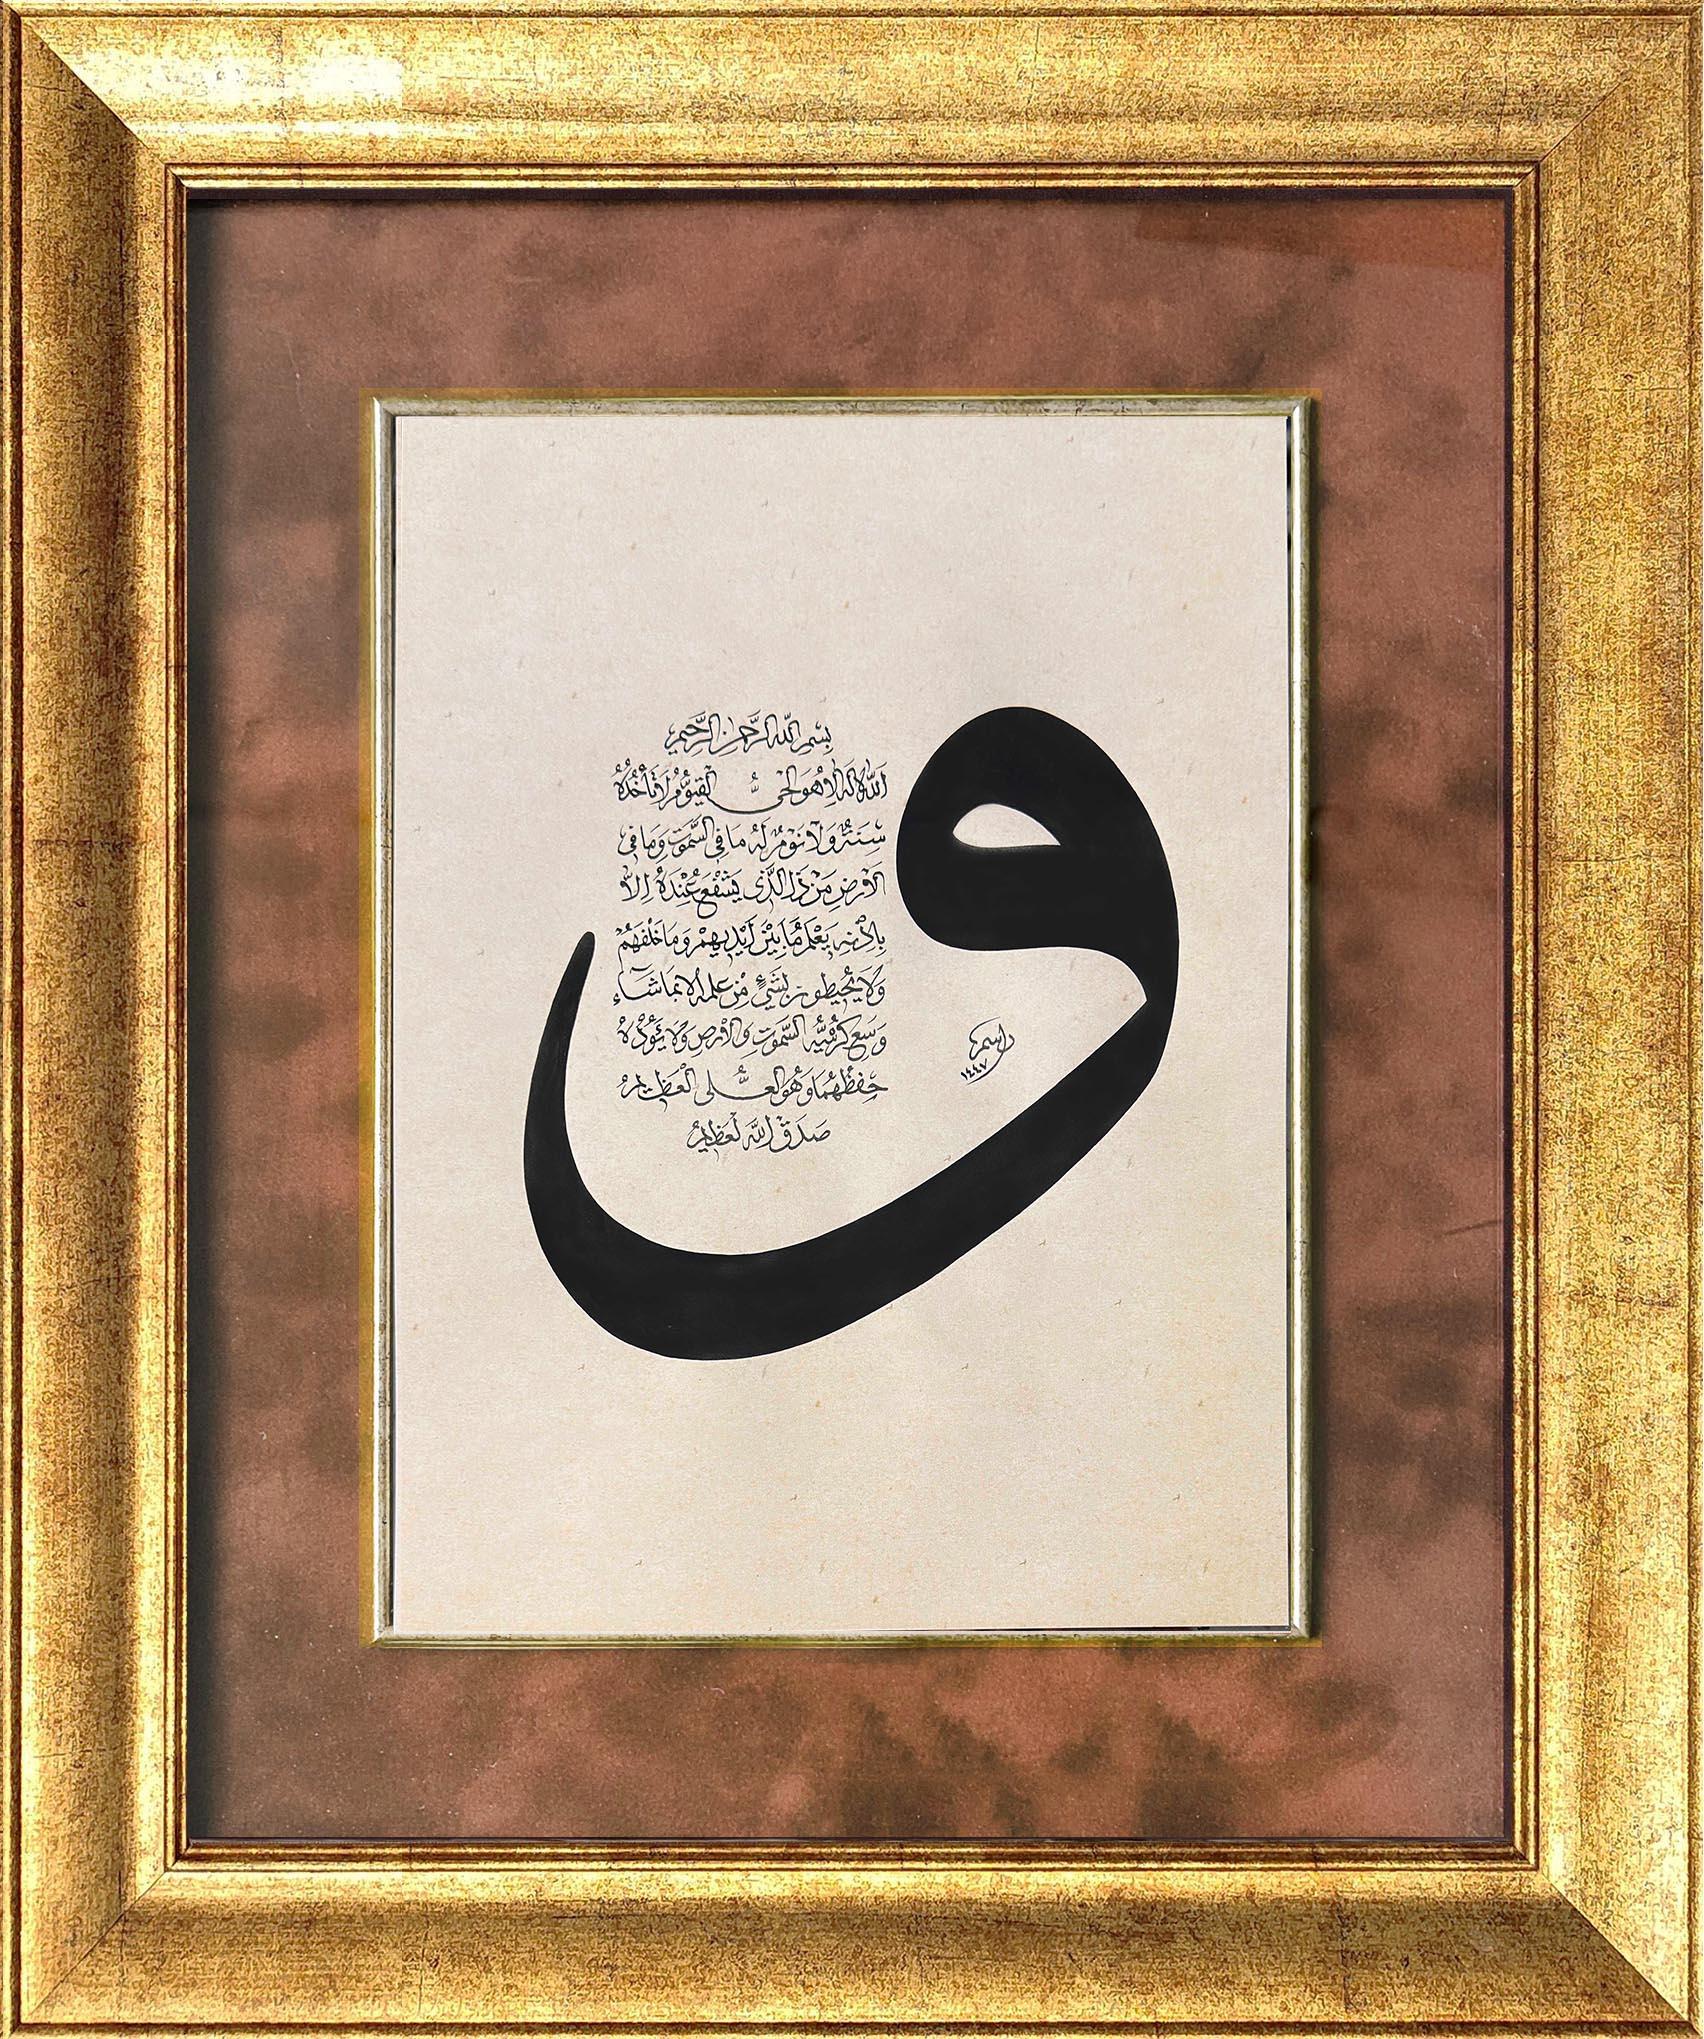 بِسْمِ اللهِ الرَّحْمٰنِ الرَّحِيمِ
اَللهُ لَا اِلٰهَ اِلَّا هُوَ الْحَىُّ الْقَيُّومُ لَا تَأْخُذُهُ
سِنَةٌ وَلَا نَوْمٌ لَهُ مَا فِى السَّمٰوٰتِ وَمَا فِى
الْاَرْضِ مَنْ ذَا الَّذِى يَشْفَعُ عِنْدَهُ اِلَّا
بِاِذْنِهِ يَعْلَمُ مَا بَيْنَ اَيْدِيهِمْ وَمَا خَلْفَهُمْ
وَلَا يُحِيطُونَ بِشَىْءٍ مِنْ عِلْمِهِ اِلَّا بِمَا شَاءَ
وَسِعَ كُرْسِيُّهُ السَّمٰوٰتِ وَالْاَرْضَ وَلَا يَؤُدُهُ
حِفْظُهُمَا وَهُوَ الْعَلِىُّ الْعَظِيمُ
صَدَقَ اللهُ الْعَظِيمُ
و
١٤٤٧